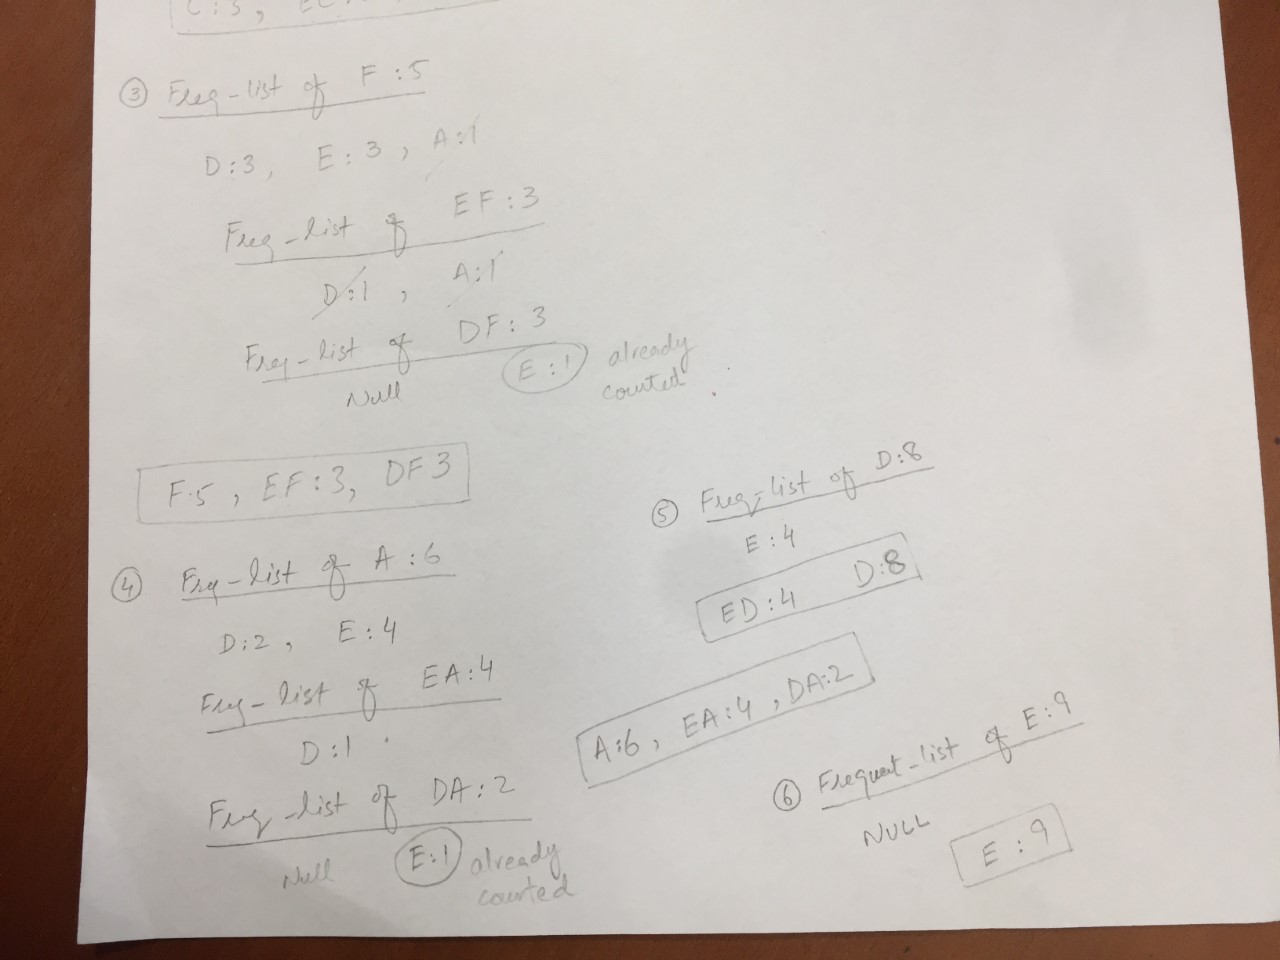 C:3,
③ Freq-list of F:5
D:3, E:3, A:1
Freq-list of EF:3
D:1, A:1
Freq-list of DF:3
Null E:1 already
counted.
F:5, EF:3, DF3
④ Freq-list of A:6
D:2, E:4
Freq-list of EA:4
D:1.
Freq-list of DA:2
Null E:1 already
counted
⑤ Freq-list of D:8
E:4
ED:4 D:8
A:6, EA:4, DA:2
⑥ Frequent-list of E:9
NULL
E:9